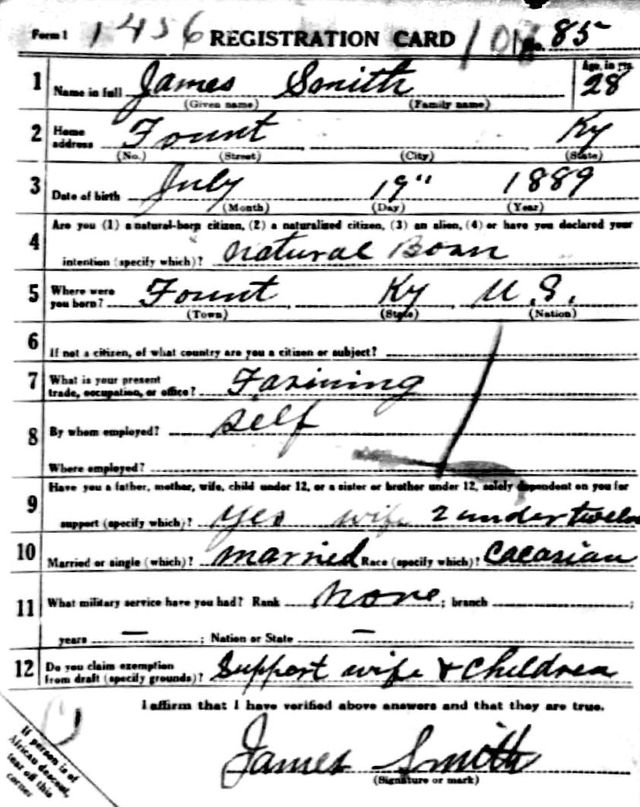 Form 1 1456 REGISTRATION CARD No. 85
Age, in yrs.
1 Name in full James Smith 28
(Given name) (Family name)
2 Home address Fount Ky
(No.) (Street) (City) (State)
3 Date of birth July 19" 1889
(Month) (Day) (Year)
4 Are you (1) a natural-born citizen, (2) a naturalized citizen, (3) an alien, (4) or have you declared your
intention (specify which)? natural Boan
5 Where were you born? Fount Ky U.S.
(Town) (State) (Nation)
6 If not a citizen, of what country are you a citizen or subject?
7 What is your present trade, occupation, or office? Farming
8 By whom employed? self
Where employed?
9 Have you a father, mother, wife, child under 12, or a sister or brother under 12, solely dependent on you for
support (specify which)? yes wife 2 under twelve
10 Married or single (which)? married Race (specify which)? Cacasian
11 What military service have you had? Rank none ; branch ;
years — ; Nation or State —
12 Do you claim exemption from draft (specify grounds)? Support wife & Children
I affirm that I have verified above answers and that they are true.
James Smith
(Signature or mark)
If person is of
African descent,
tear off this
corner